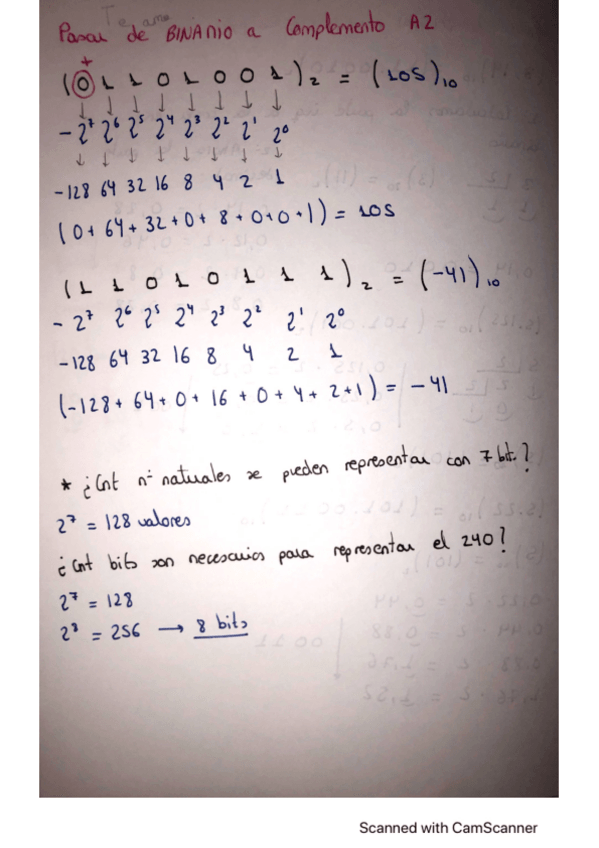 Te amo
Pasar de BINARIO a Complemento A2
+
(0 1 1 0 1 0 0 1)₂ = (105)₁₀
↓ ↓ ↓ ↓ ↓ ↓ ↓ ↓
-2⁷ 2⁶ 2⁵ 2⁴ 2³ 2² 2¹ 2⁰
↓ ↓ ↓ ↓ ↓ ↓ ↓
-128 64 32 16 8 4 2 1
(0+ 64+ 32+0+ 8+0+0+1) = 105
(1 1 0 1 0 1 1 1)₂ = (-41)₁₀
- 2⁷ 2⁶ 2⁵ 2⁴ 2³ 2² 2¹ 2⁰
-128 64 32 16 8 4 2 1
(-128+ 64+0+ 16 +0+ 4+ 2+1) = -41
* ¿Cnt nº naturales se pueden representar con 7 bit?
2⁷ = 128 valores
¿Cnt bits son necesarios para representar el 240?
2⁷ = 128
2⁸ = 256 → 8 bits
Scanned with CamScanner